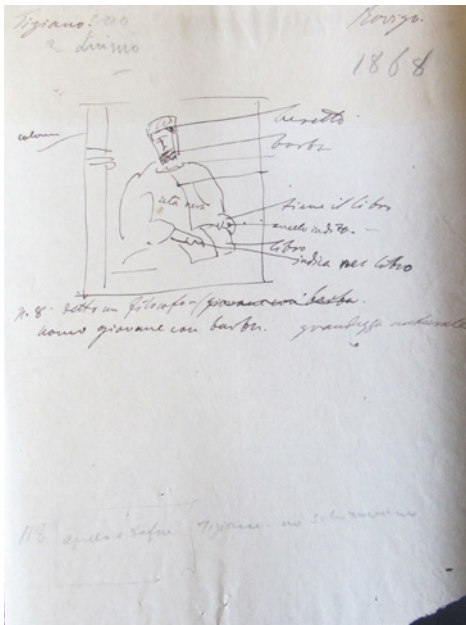 Tiziano. Rovigo.
a Luismo
1868
colonna
beretto
barba
seta nera
tiene il libro
anello indice
libro
indica nel libro
n. 8. detto un filosofo / giovane con barba.
uomo giovane con barba. grandezza naturale
118 Apollo e Dafne Tiziano no Schiavone